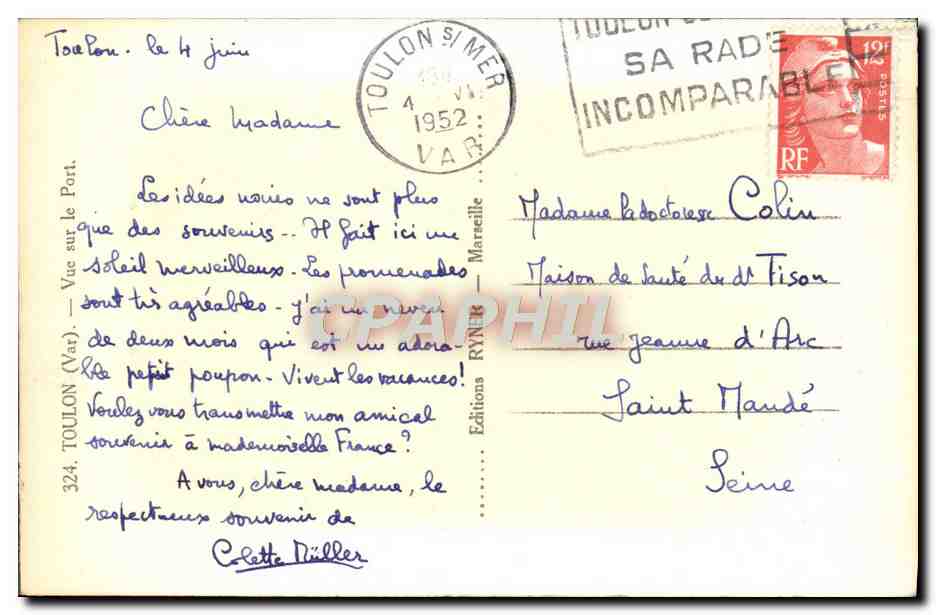 Toulon. le 4 juin
Chère Madame
Les idées noires ne sont plus
que des souvenirs.. Il fait ici un
soleil merveilleux. Les promenades
sont très agréables. J'ai un neveu
de deux mois qui est un adora-
ble petit poupon. Vivent les vacances!
Voulez vous transmettre mon amical
souvenir à mademoiselle France?
A vous, chère madame, le
respectueux souvenir de
Colette Müller
324. TOULON (Var). — Vue sur le Port.
Editions RYNER — Marseille
TOULON S/ MER
4 VI
1952
VAR
TOULON
SA RADE
INCOMPARABLE
12F
POSTES
RF
Madame la doctoresse Colin
Maison de Santé du dr Tison
rue Jeanne d'Arc
Saint Mandé
Seine
CPAPHIL